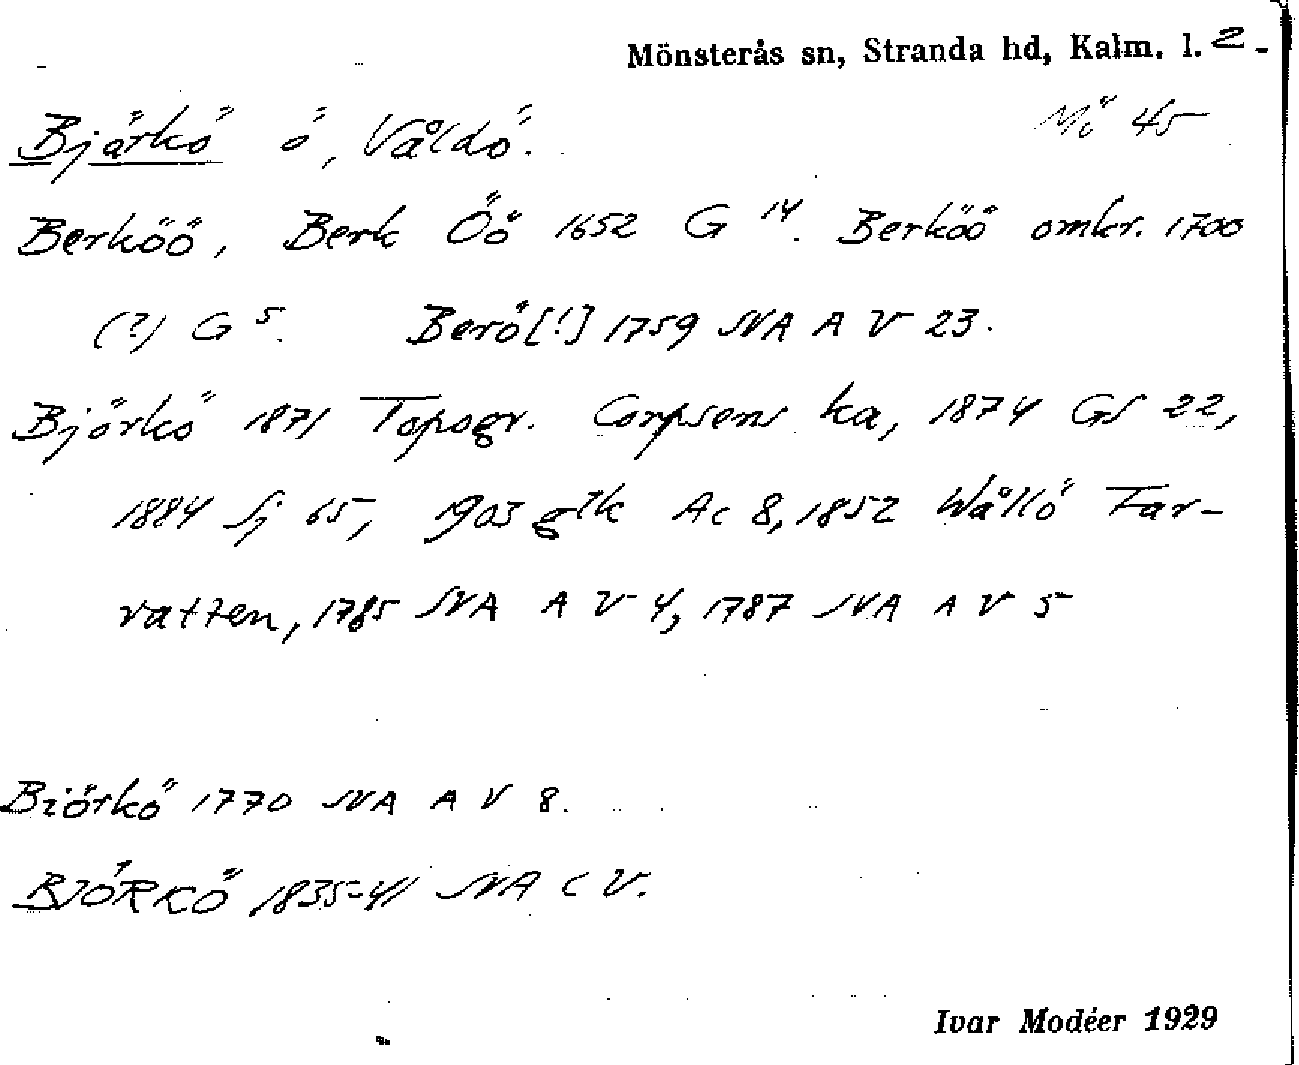 Mönsterås sn, Stranda hd, Kalm. l. 2 -
Björkö ö, Våldö. Mö 45
Berköö, Berk Öö 1652 G 14. Berköö omkr. 1700
(?) G 5. Berö [!] 1759 SVA A V 23.
Björkö 1871 Topogr. Corpsens ka, 1874 GS 22,
1884 Sj 65, 1903 glk Ac 8, 1852 Wållö Far-
vatten, 1785 SVA A V 4, 1787 SVA A V 5
Biörkö 1770 SVA A V 8.
BJÖRKÖ 1835-41 SVA C V.
Ivar Modéer 1929